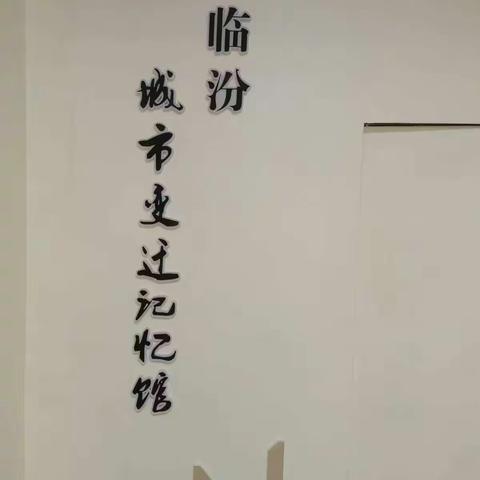 临汾
城市变迁记忆馆